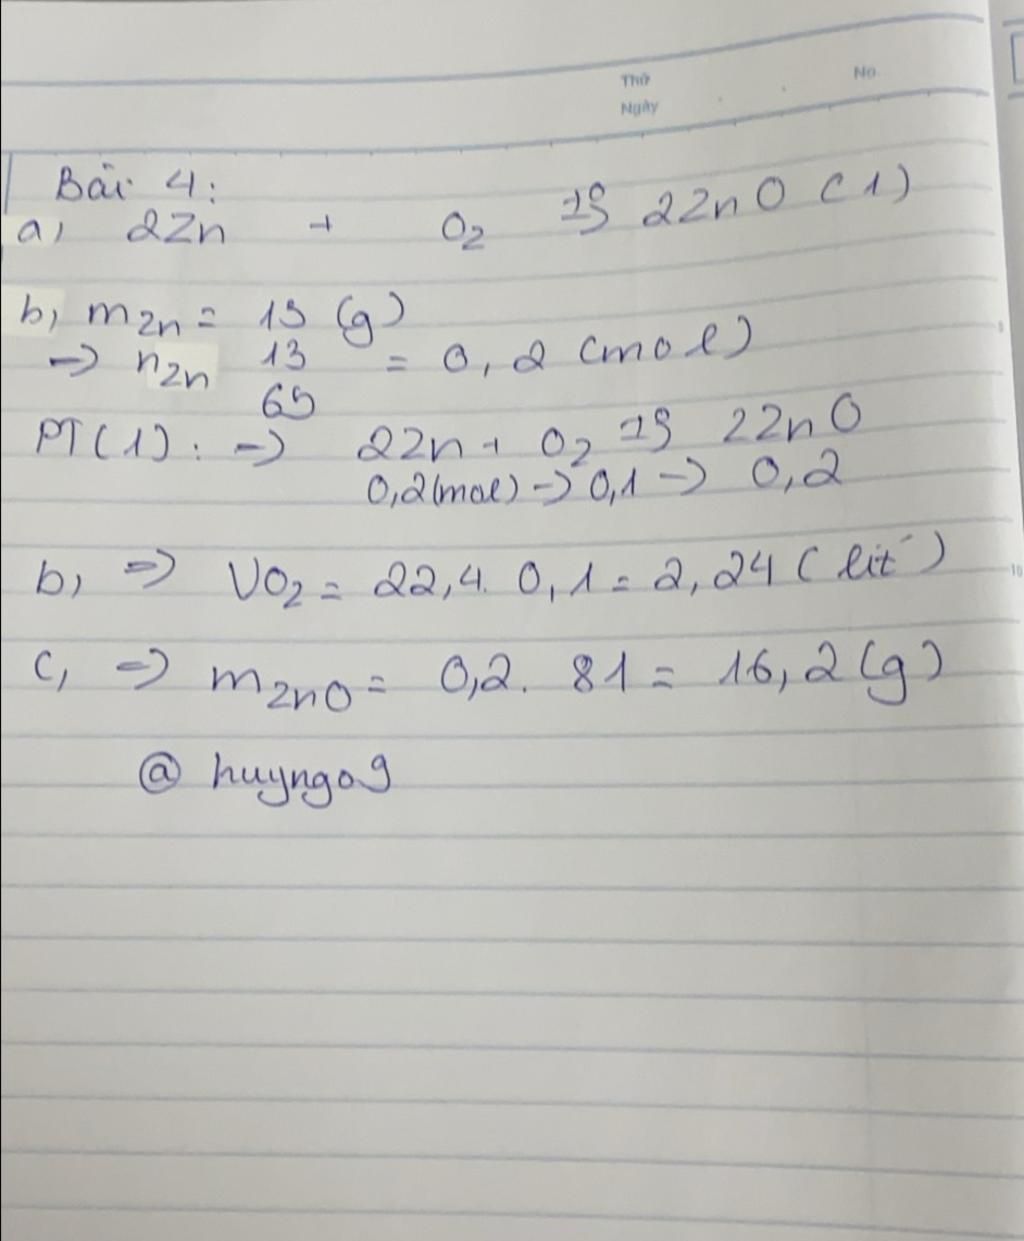 Thứ
No.
Ngày
Bài 4:
a, 2Zn + O2 → 2ZnO (1)
b, mZn = 13 (g)
→ nZn 13 = 0,2 (mol)
65
PT(1): → 2Zn + O2 → 2ZnO
0,2(mol) → 0,1 → 0,2
b, => VO2 = 22,4. 0,1 = 2,24 (lít)
c, => mZnO = 0,2. 81 = 16,2 (g)
@ huyngo9
10